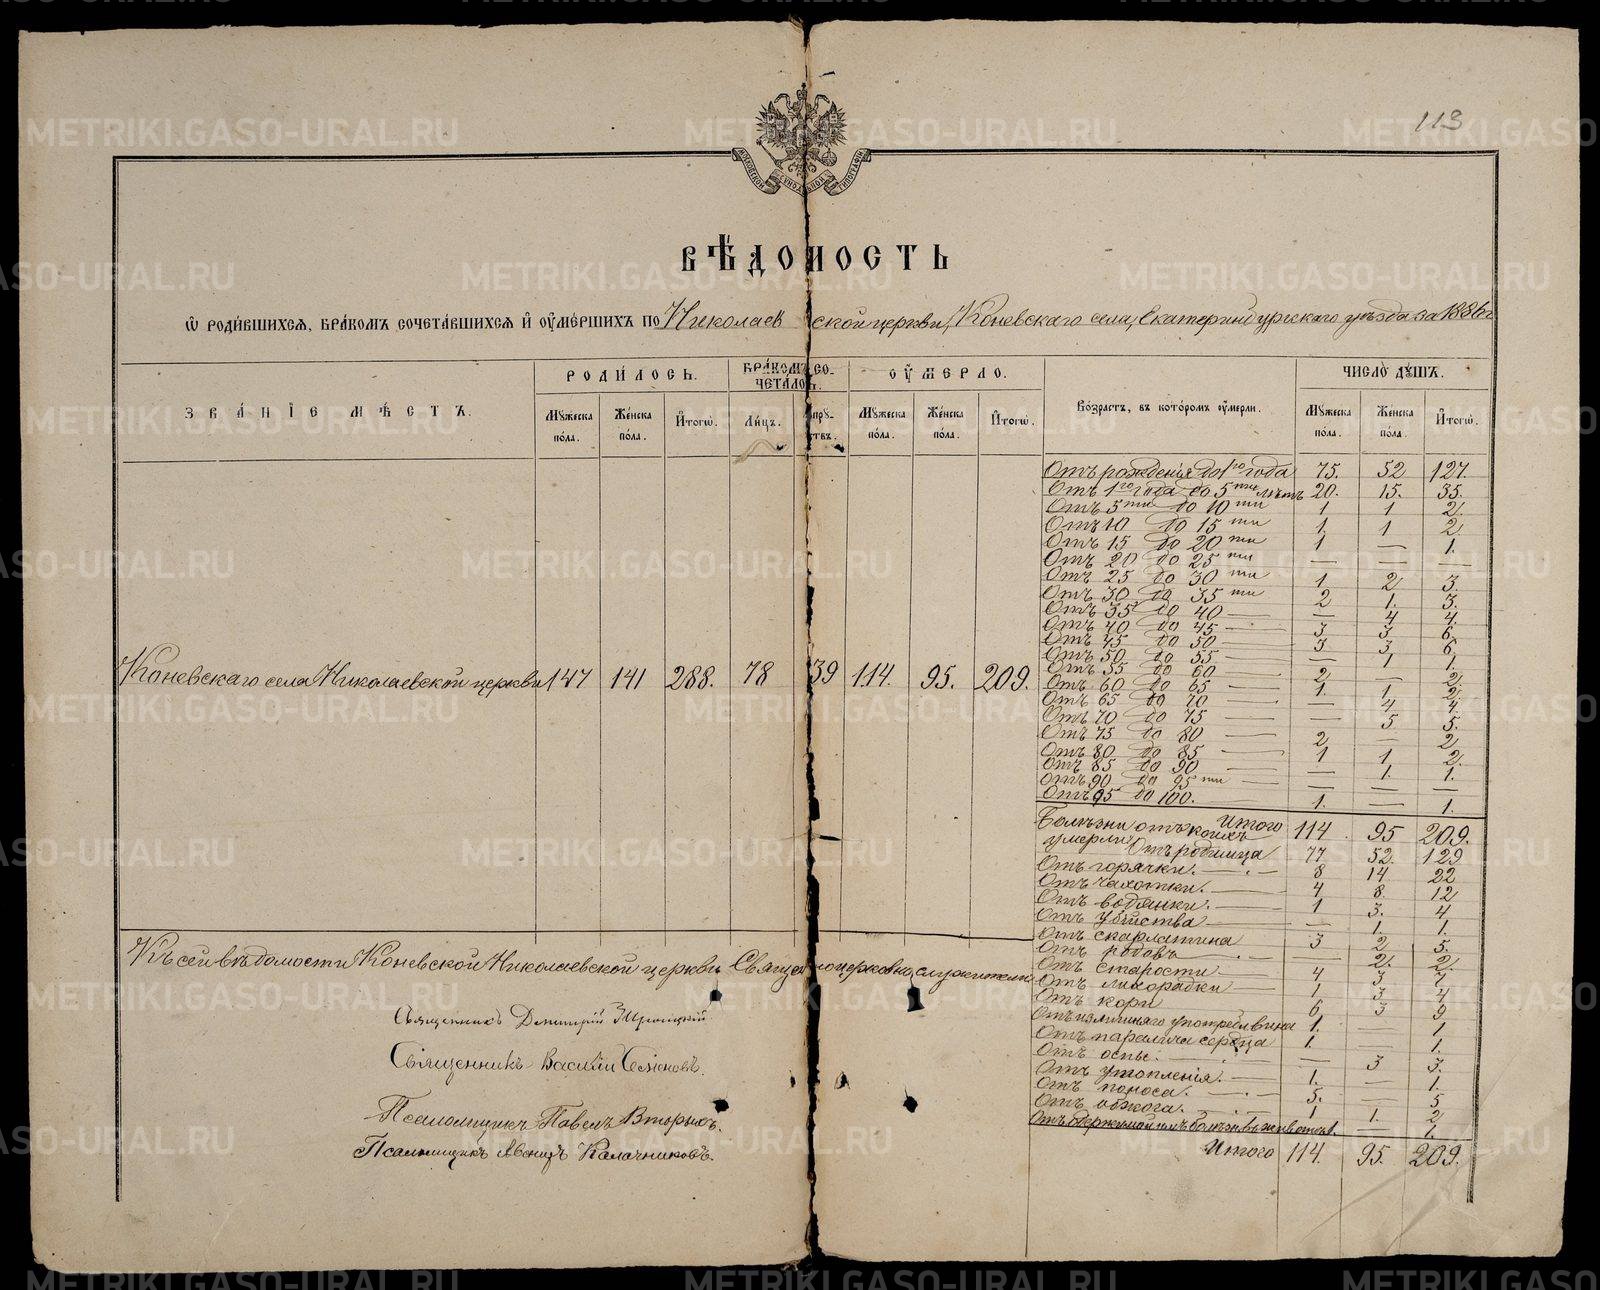 113
МОСКОВСКОЙ СѴНОДАЛЬНОЙ ТИПОГРАФІИ
ВѢДОМОСТЬ
Ѽ РОДИ́ВШИХСЯ, БРА́КОМЪ СОЧЕТА́ВШИХСЯ И҆ ОУ҆МЕ́РШИХЪ ПО Николаевской церкви, Коневскаго села, Екатеринбургскаго уѣзда за 1886 г
ЗВА́НІЕ МѢ́СТЪ. РОДИ́ЛОСЬ. БРА́КОМЪ СО- ЧЕТА́ЛОСЬ. ОУ҆́МЕРЛО. Во́зрастъ, въ кото́ромъ оу҆мерли. ЧИСЛО̀ ДꙊШЪ.
Мꙋ́жеска по́ла. Же́нска по́ла. И҆тогѡ̀. Ли́цъ. Мꙋ́жеска по́ла. Же́нска по́ла. И҆тогѡ̀. Мꙋ́жеска по́ла. Же́нска по́ла. И҆тогѡ̀.
Отъ рожденія до 1го года 75. 52 127.
Отъ 1го года до 5ти лѣтъ 20. 15. 35.
Отъ 5ти до 10ти 1 1 2.
Отъ 10 до 15ти 1. 1 2.
Отъ 15 до 20ти 1 — 1.
Отъ 20 до 25ти — — —
Отъ 25 до 30ти 1. 2 3.
Отъ 30 до 35ти 2 1. 3.
Отъ 35 до 40 — 4 4.
Отъ 40 до 45 3 3 6.
Отъ 45 до 50 3 3 6
Отъ 50 до 55 — 1 1.
Отъ 55 до 60 2 — 2.
Отъ 60 до 65 1. 1. 2.
Отъ 65 до 70 — 4 4.
Отъ 70 до 75 — 5 5.
Отъ 75 до 80 2 — 2
Отъ 80 до 85 1 1 2.
Отъ 85 до 90 — 1. 1.
Отъ 90 до 95ти — — —
Отъ 95 до 100. 1. — 1.
Итого 114. 95 209.
Коневскаго села Николаевской церкви 147 141 288. 78 39 114. 95. 209.
Болѣзни отъ коихъ
умерли Отъ родимца 77 52. 129
Отъ горячки. 8 14 22
Отъ чахотки. 4 8. 12
Отъ водянки. 1 3. 4
Отъ убійства — 1. 1.
Отъ скарлатина 3 2 5.
Отъ родовъ — 2. 2.
Отъ старости 4 3 7
Отъ лихорадки 1 3 4
Отъ кори 6 3 9
Отъ излишняго употребл вина 1. — 1.
Отъ паралича сердца 1. — 1.
Отъ оспы. — 3 3.
Отъ утопленія. 1. — 1.
Отъ поноса. 5. — 5
Отъ обжога. 1 1. 2
1. — 1.
Итого 114. 95. 209.
Къ сей вѣдомости Коневской Николаевской церкви Священноцерковнослужители
Священникъ Димитрій Троицкій
Священникъ Василій
Псаломщикъ Павелъ Вторыхъ.
Псаломщикъ Калачниковъ.
METRIKI.GASO-URAL.RU